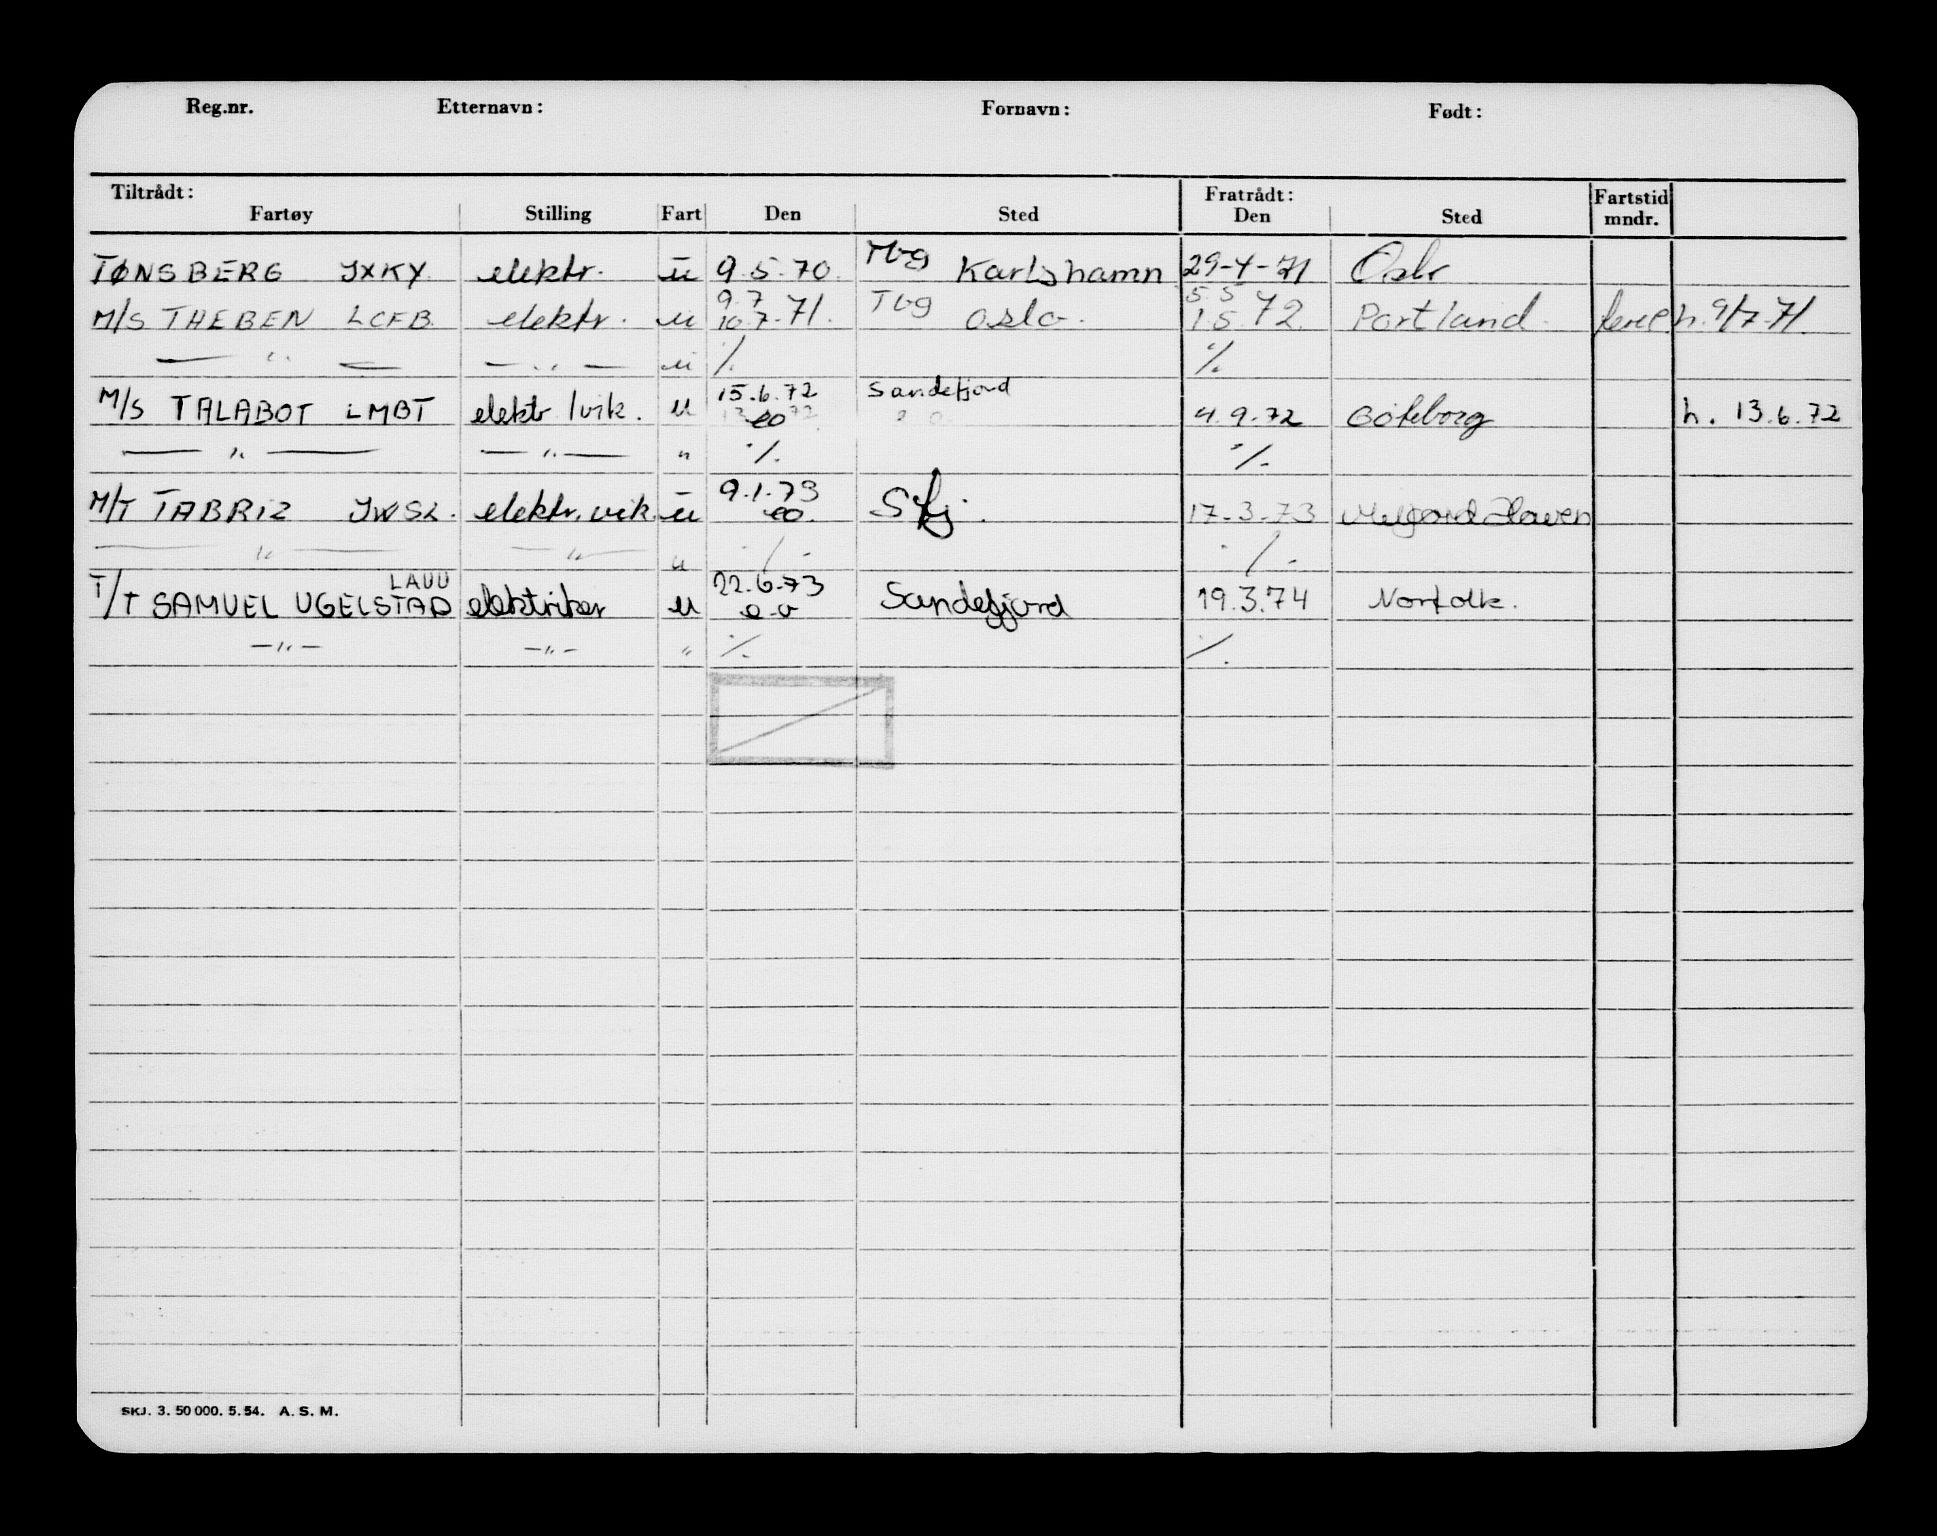 Reg.nr. Etternavn: Fornavn: Født:
Tiltrådt: Fratrådt: Fartstid
Fartøy Stilling Fart Den Sted Den Sted mndr.
TØNSBERG JXKY. elektr. u 9.5.70. Tbg Karlshamn 29-4-71 Oslo
9.7 5.5
M/S THEBEN LCFB. elektr. u 10.7.71. Tbg Oslo. 1.5.72. Portland. h. 9/7-71.
— " — — " — u ·/. ·/.
15.6.72 Sandefjord
M/S TALABOT LMBT elektr/vik. u eo 4.9.72 Göteborg h. 13.6.72
— " — — " — " ·/. ·/.
9.1.73
M/T TABRIZ JWSL. elektr.vik. u eo. Sfj. 17.3.73 Milford Haven
— " — — " — u ·/. ·/.
LAUU 22.6.73
T/T SAMUEL UGELSTAD elektriker u e.o Sandefjord 19.3.74 Norfolk.
— " — — " — " ·/. ·/.
SKJ. 3. 50 000. 5. 54. A. S. M.